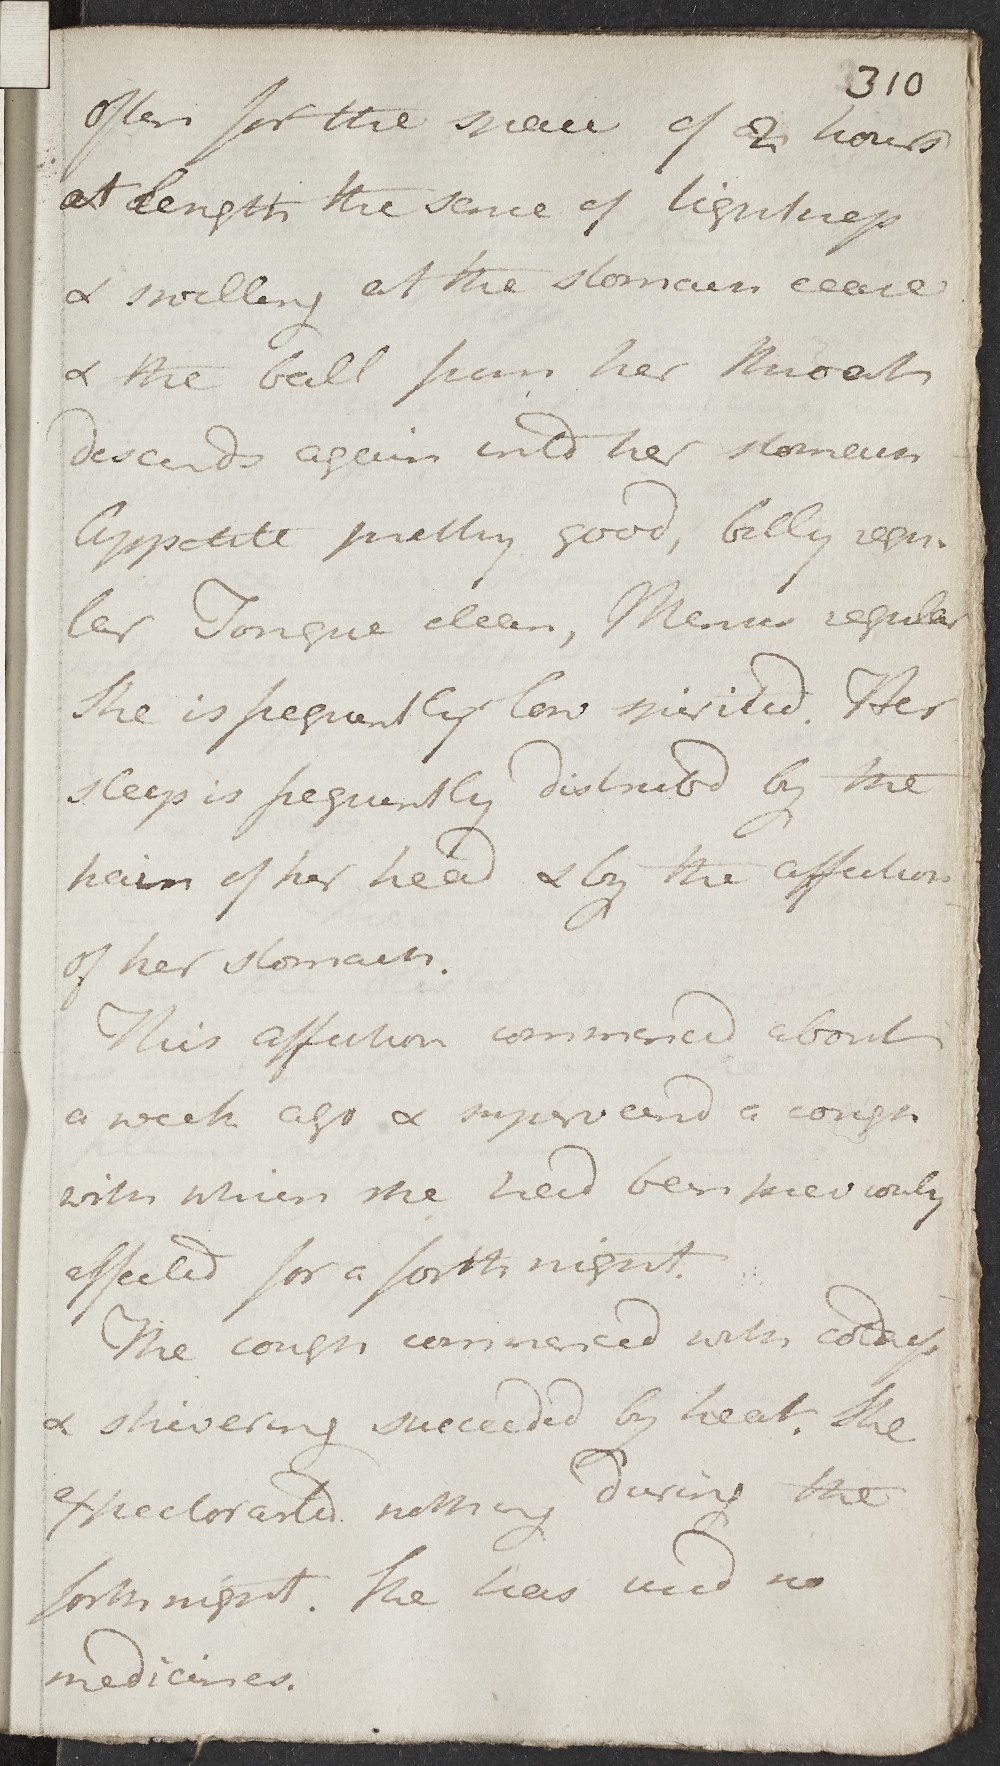 310
often for the space of 2 hours
at length the sence of tightness
& swelling at the stomach cease
& the ball from her throat
descends again into her stomach
Appetite pretty good, belly regu-
lar Tongue clean, Menses regular
She is frequently low spirited. Her
sleep is frequently disturbed by the
pain of her head & by the affection
of her stomach.
This affection commenced about
a week ago & supervened a cough
with which she had been previously
affected for a forthnight.
The cough commenced with coldness
& shivering succeeded by heat. She
expectorated nothing during the
forthnight. She has used no
medicines.